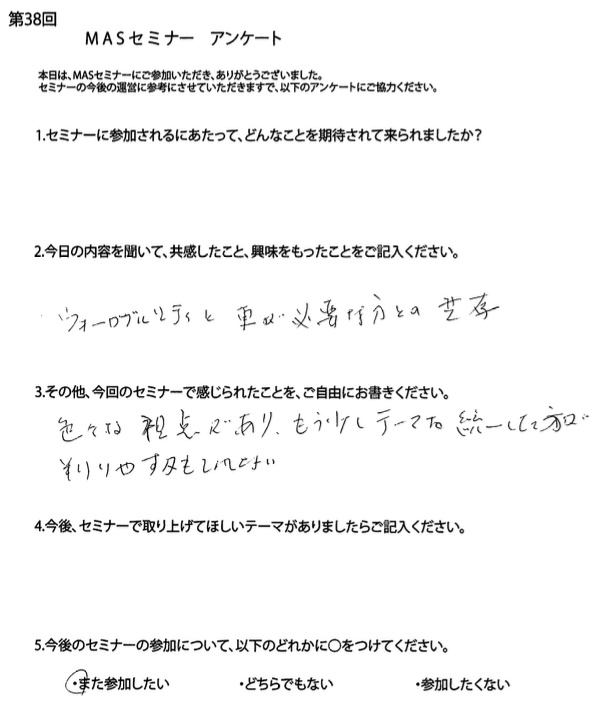 第38回
MASセミナー アンケート
本日は、MASセミナーにご参加いただき、ありがとうございました。
セミナーの今後の運営に参考にさせていただきますで、以下のアンケートにご協力ください。
1.セミナーに参加されるにあたって、どんなことを期待されて来られましたか?
2.今日の内容を聞いて、共感したこと、興味をもったことをご記入ください。
ウォーカブルシティと車が必要な方との共存
3.その他、今回のセミナーで感じられたことを、ご自由にお書きください。
色々な視点があり、もう少しテーマを統一した方が
判りやすいかもしれない
4.今後、セミナーで取り上げてほしいテーマがありましたらご記入ください。
5.今後のセミナーの参加について、以下のどれかに〇をつけてください。
・また参加したい ・どちらでもない ・参加したくない